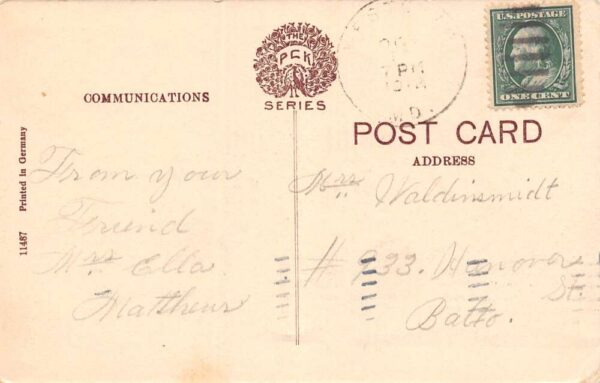 THE
P C K
SERIES
U.S. POSTAGE
ONE CENT
7 PM
MD.
COMMUNICATIONS
POST CARD
ADDRESS
11487 Printed in Germany
From your
Friend
Mrs Ella
Matthews
Mrs Waldinsmidt
# 933. Hanover
St.
Balto.